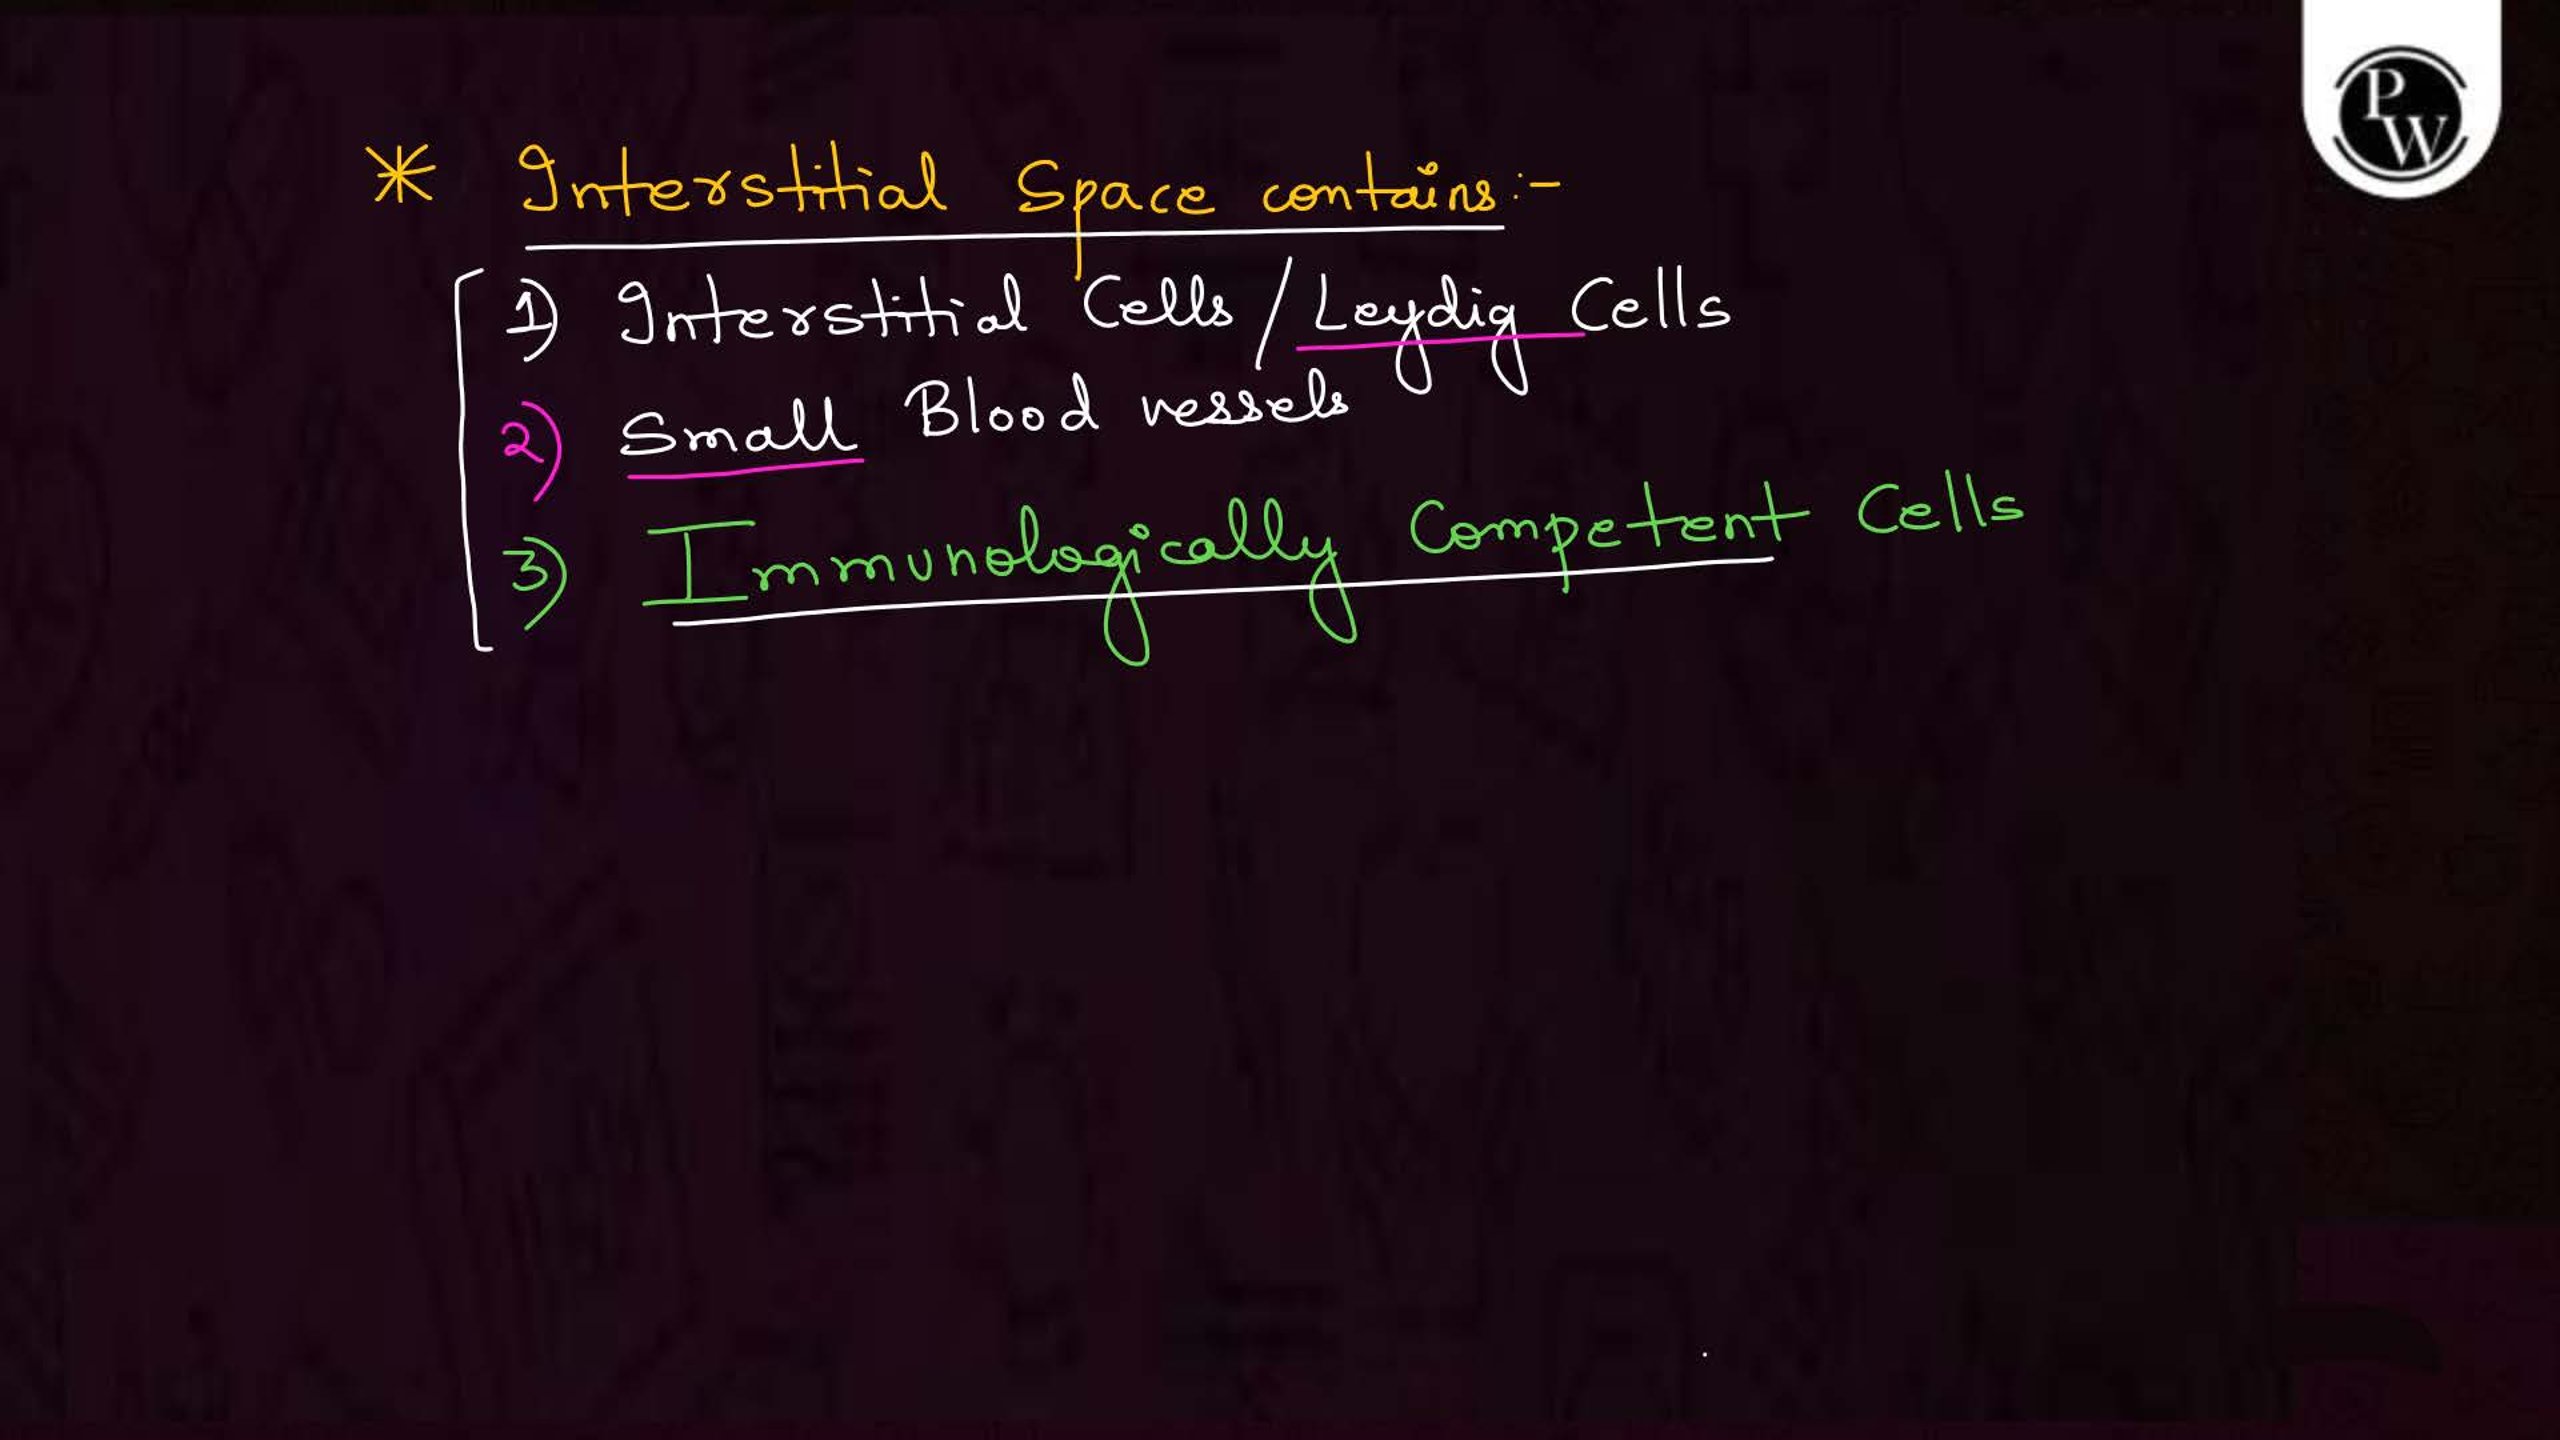 PW
* Interstitial Space contains:-
1) Interstitial Cells / Leydig Cells
2) Small Blood vessels
3) Immunologically Competent Cells